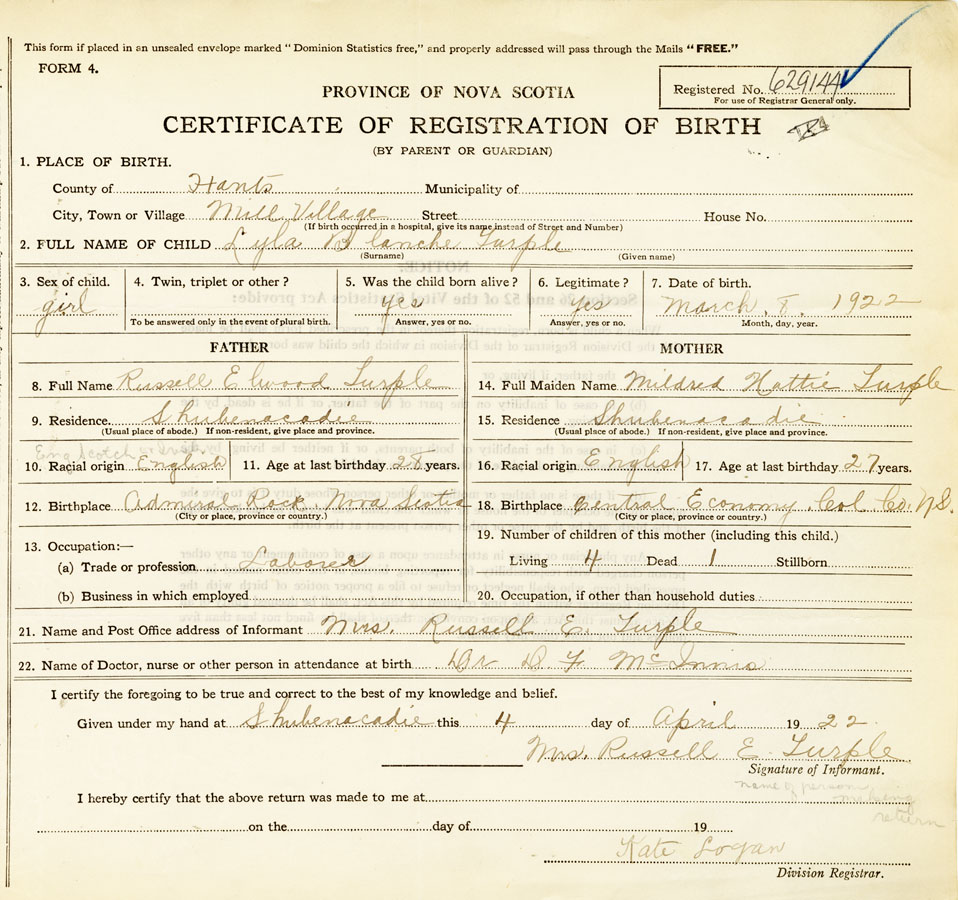 This form if placed in an unsealed envelope marked "Dominion Statistics free," and properly addressed will pass through the Mails "FREE."
FORM 4.
Registered No. 629144
For use of Registrar General only.
PROVINCE OF NOVA SCOTIA
CERTIFICATE OF REGISTRATION OF BIRTH
(BY PARENT OR GUARDIAN)
1. PLACE OF BIRTH.
County of Hants Municipality of
City, Town or Village Mill Village Street House No.
(If birth occurred in a hospital, give its name instead of Street and Number)
2. FULL NAME OF CHILD Lyla Blanche Turple
(Surname) (Given name)
3. Sex of child. 4. Twin, triplet or other? 5. Was the child born alive? 6. Legitimate? 7. Date of birth.
girl yes yes March. 8. 1922
To be answered only in the event of plural birth. Answer, yes or no. Answer, yes or no. Month, day, year.
FATHER MOTHER
8. Full Name Russell Elwood Turple 14. Full Maiden Name Mildred Hattie Turple
9. Residence. Shubenacadie 15. Residence Shubenacadie
(Usual place of abode.) If non-resident, give place and province. (Usual place of abode.) If non-resident, give place and province.
Eng Scotch
10. Racial origin English 11. Age at last birthday 28 years. 16. Racial origin English 17. Age at last birthday 27 years.
12. Birthplace Admiral Rock, Nova Scotia 18. Birthplace Central Economy. Col. Co. N.S.
(City or place, province or country.) (City or place, province or country.)
13. Occupation:— 19. Number of children of this mother (including this child.)
(a) Trade or profession Laborer Living 4 Dead 1 Stillborn
(b) Business in which employed 20. Occupation, if other than household duties
21. Name and Post Office address of Informant Mrs. Russell E. Turple
22. Name of Doctor, nurse or other person in attendance at birth Dr D F McInnis
I certify the foregoing to be true and correct to the best of my knowledge and belief.
Given under my hand at Shubenacadie this 4 day of April 19 22.
Mrs. Russell E. Turple
Signature of Informant.
name of person
making
return
I hereby certify that the above return was made to me at
on the day of 19
Kate Logan
Division Registrar.